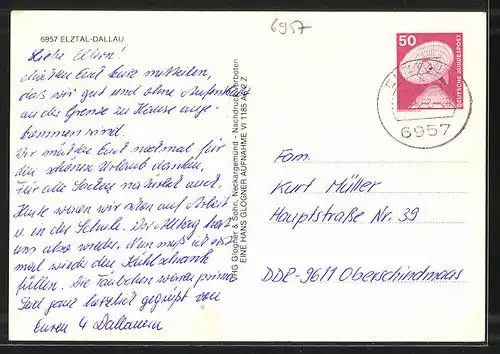 6957
6957 ELZTAL-DALLAU
Liebe Eltern!
Möchten Euch kurz mitteilen,
daß wir gut und ohne Aufenthalt
an der Grenze zu Hause ange-
kommen sind.
Wir möchten Euch nochmal für
den schönen Urlaub danken.
Für die Sachen natürlich auch.
Heute waren wir schon auf Arbeit
u. in der Schule. Der Alltag hat
uns also wieder. Nun muß ich erst
mal wieder den Kühlschrank
füllen. Die Täubchen waren prima.
Seid ganz herzlich gegrüßt von
Euren 4 Dallauern
Glogner & Sohn, Neckargemünd - Nachdruck verboten
EINE HANS GLOGNER AUFNAHME VI 1185 Z
50
DEUTSCHE BUNDESPOST
6957
Fam.
Kurt Müller
Hauptstraße Nr. 39
DDR-9611 Oberschindmaas